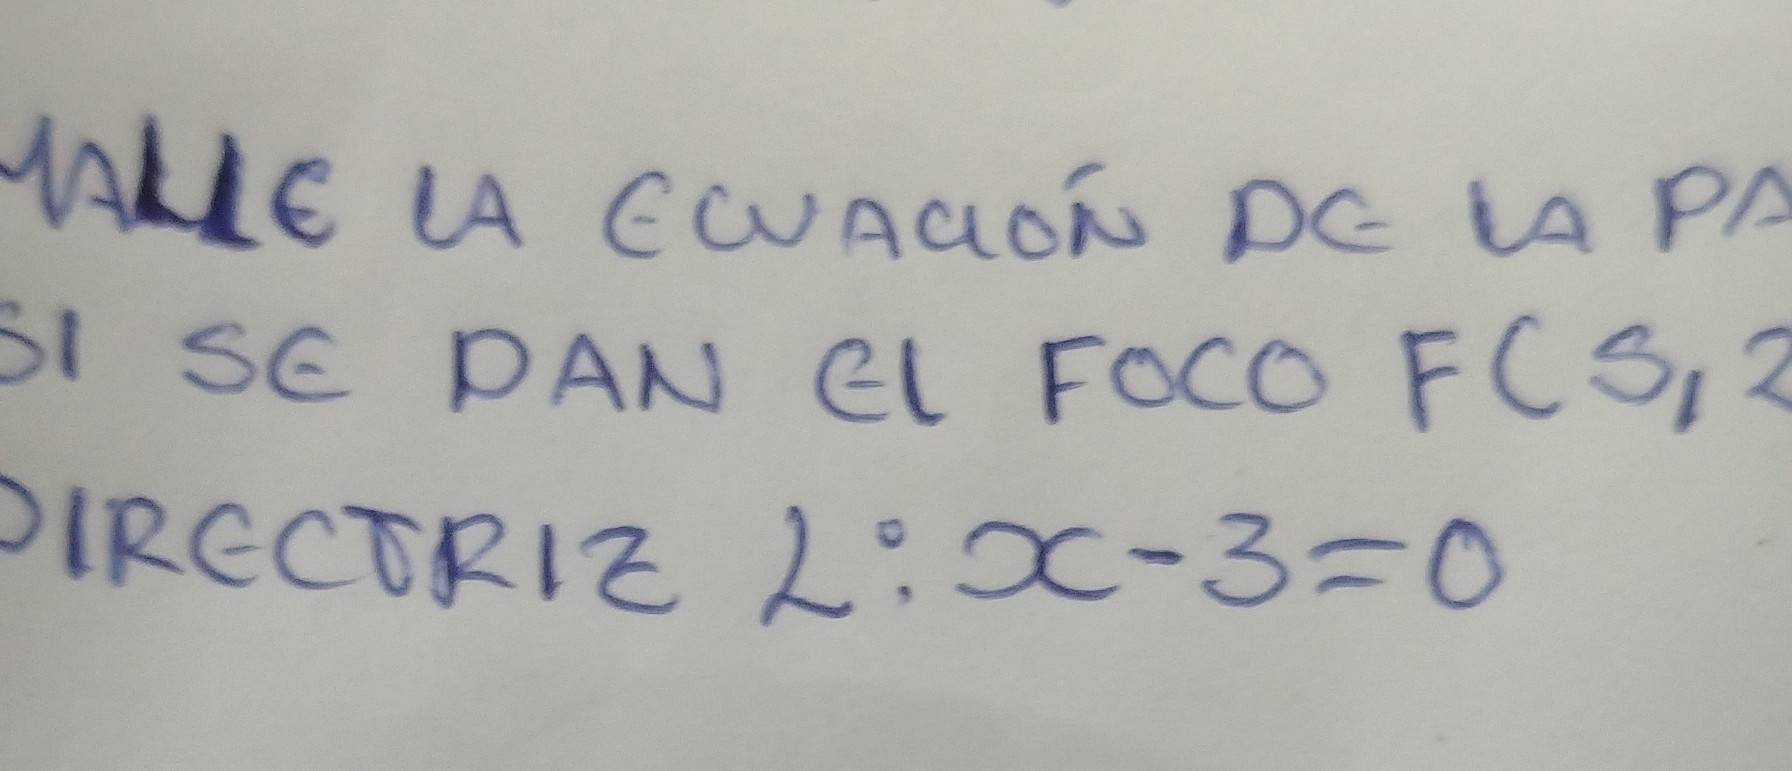 HALLE LA ECUACIÓN DE LA PA
SI SE DAN EL FOCO F(5,2
DIRECTRIZ L: x-3=0